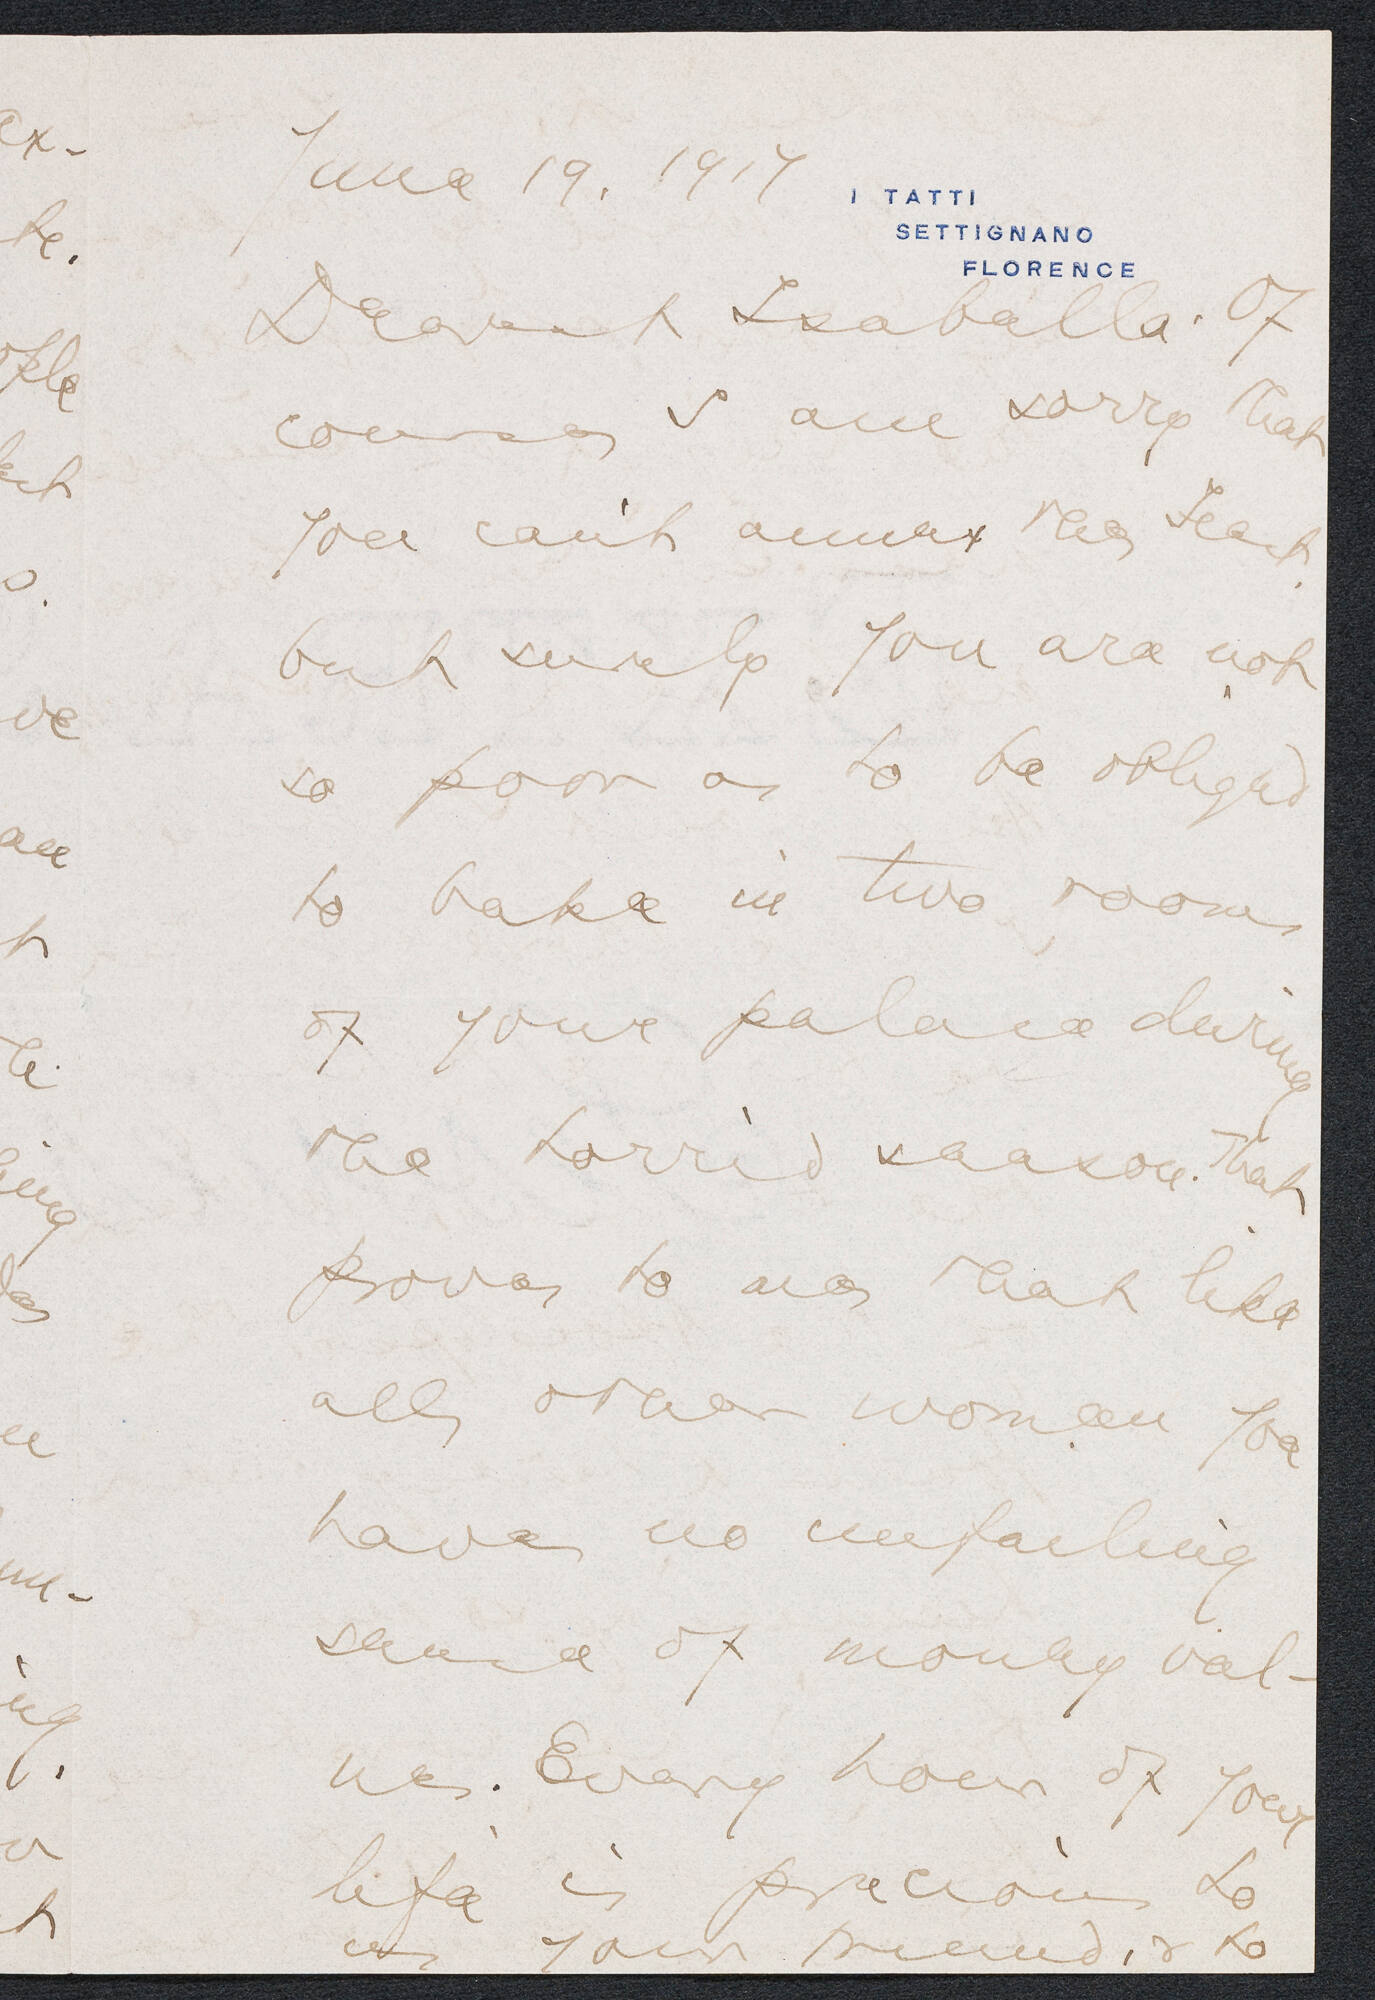 June 19. 1917
I TATTI
SETTIGNANO
FLORENCE
Dearest Isabella. Of
course I am sorry that
you can't annex the
but surely you are not
so poor as to be obliged
to bake in two rooms
of your palace during
the torrid season. That
proves to me that like
all other women you
have no unfailing
sense of money val-
ues. Every hour of your
life is precious to
us your friends, & to